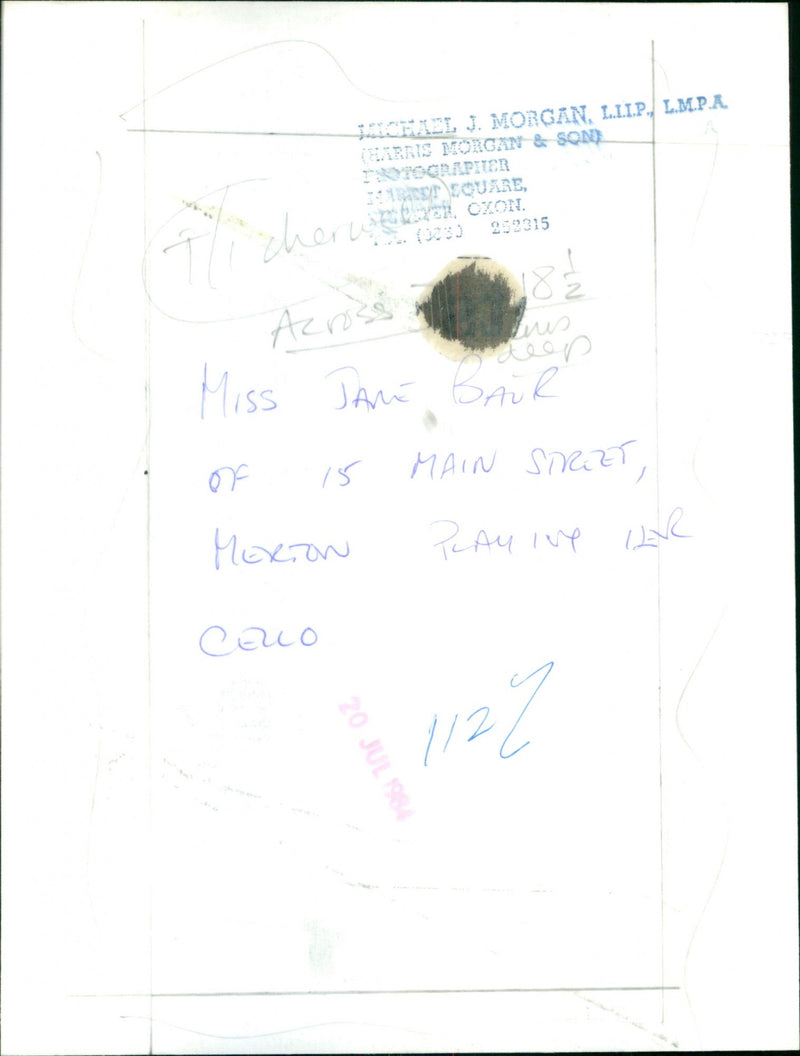 MICHAEL J. MORGAN, L.I.I.P., L.M.P.A.
(HARRIS MORGAN & SON)
PHOTOGRAPHER
MARKET SQUARE,
BICESTER, OXON.
252315
T/
Across 18 1/2
ems
deep
MISS JANE BAUR
OF 15 MAIN STREET,
MERTON PLAYING HER
CELLO
20 JUL 1984
112%